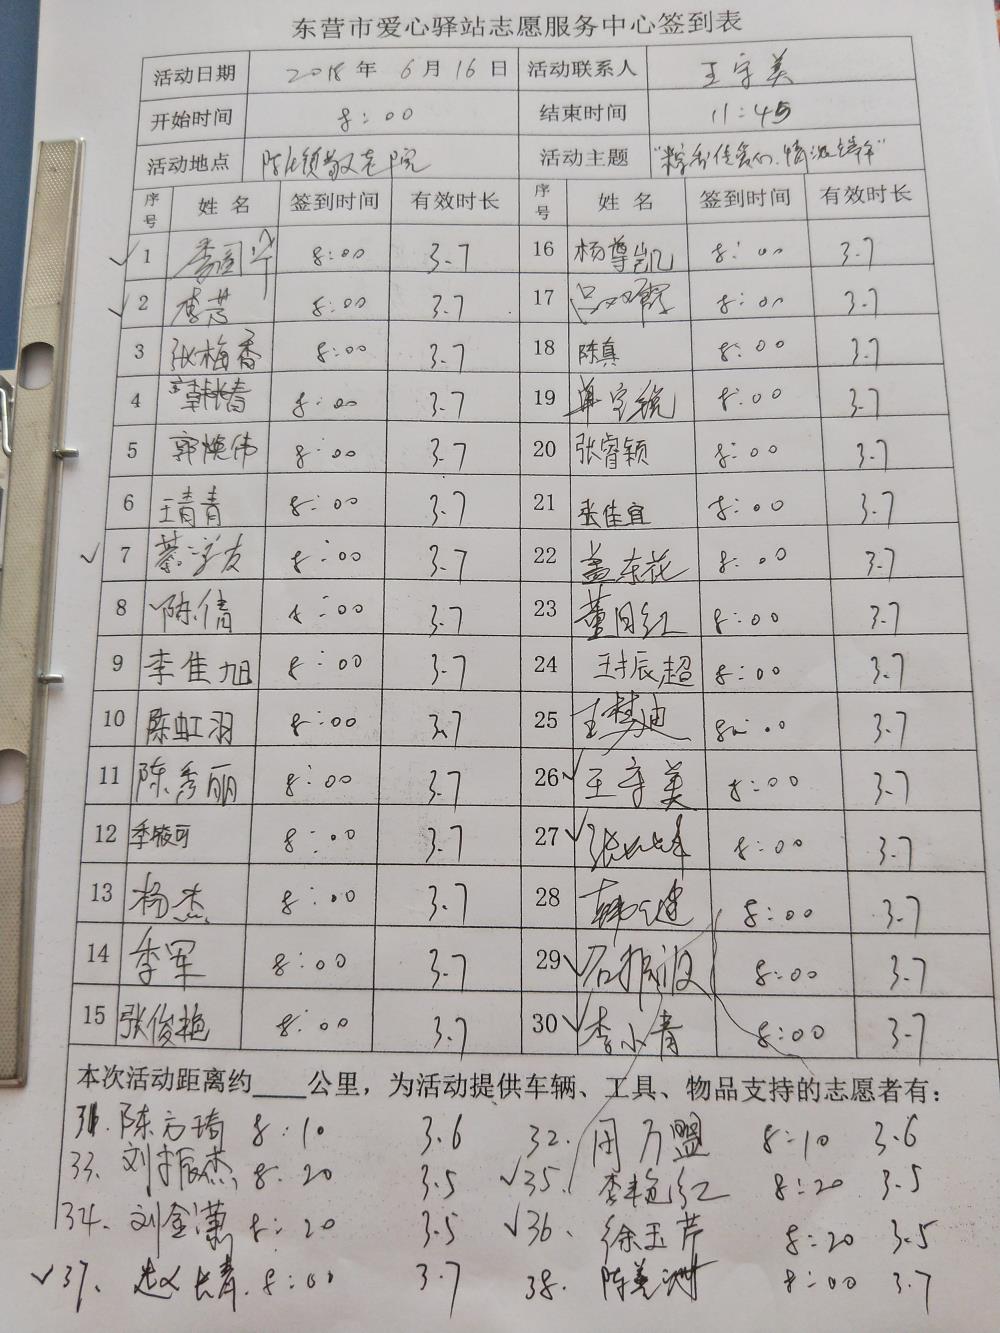 东营市爱心驿站志愿服务中心签到表
活动日期 2018年 6月16日 活动联系人 王守美
开始时间 8:00 结束时间 11:45
活动地点 敬老院 活动主题
序号 姓名 签到时间 有效时长 序号 姓名 签到时间 有效时长
1 8:00 3.7 16 杨尊凯 8:00 3.7
2 8:00 3.7 17 8:00 3.7
3 张梅香 8:00 3.7 18 陈真 8:00 3.7
4 韩长春 8:00 3.7 19 8:00 3.7
5 郭焕伟 8:00 3.7 20 张睿颖 8:00 3.7
6 王青青 8:00 3.7 21 张佳宜 8:00 3.7
7 8:00 3.7 22 盖东花 8:00 3.7
8 陈倩 8:00 3.7 23 董月红 8:00 3.7
9 李佳旭 8:00 3.7 24 王振超 8:00 3.7
10 陈虹羽 8:00 3.7 25 王梦迪 8:00 3.7
11 陈秀丽 8:00 3.7 26 王守美 8:00 3.7
12 8:00 3.7 27 8:00 3.7
13 杨杰 8:00 3.7 28 8:00 3.7
14 李军 8:00 3.7 29 8:00 3.7
15 张俊艳 8:00 3.7 30 李小青 8:00 3.7
本次活动距离约____公里，为活动提供车辆、工具、物品支持的志愿者有：
31. 陈方琦 8:10 3.6 32. 周万盟 8:10 3.6
33. 刘振杰 8:20 3.5 35. 李艳红 8:20 3.5
34. 刘金潇 8:20 3.5 36. 徐玉芹 8:20 3.5
37. 赵长青 8:00 3.7 38. 陈美 8:00 3.7